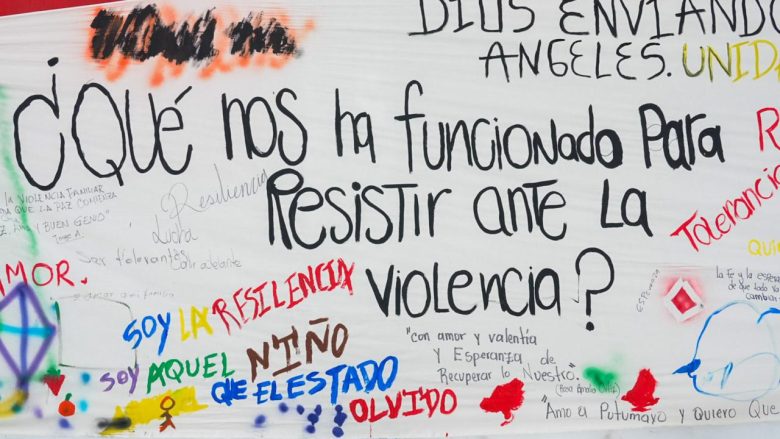 DIOS ENVIANDO
ANGELES. UNIDA
¿QUÉ nos ha funcionado para
Resistir ante la
violencia?
LA VIOLENCIA FAMILIAR
QUE LA PAZ COMIENZA
Y BUEN GENIO"
Resiliencia
Lucha
Ser tolerantes
Salir adelante
AMOR.
Tolerancia
SOY LA RESILENCIA
SOY AQUEL NIÑO
QUE EL ESTADO
OLVIDO
"Con amor y valentía
y Esperanza de
Recuperar lo Nuestro.
ESPERANZA
la fe y la espera
de que todo va
cambiar
"Amo el Putumayo y Quiero Que